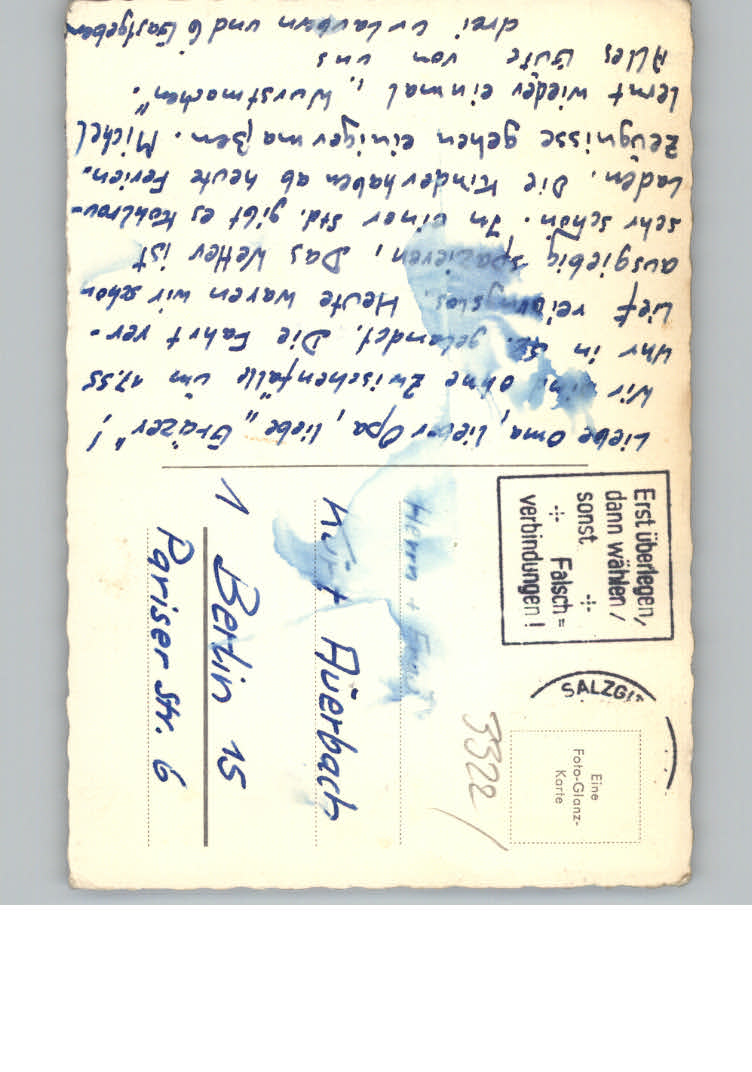 Liebe Oma, lieber Opa, liebe „Grazer"!
Wir sind ohne Zwischenfälle um 17.55
Uhr in gelandet. Die Fahrt ver-
lief reibungslos. Heute waren wir schon
ausgiebig spazieren, Das Wetter ist
sehr schön. In einer Std. gibt es Kohlrou-
laden. Die Kinder haben ab heute Ferien.
Zeugnisse gehen einigermaßen. Michel
lernt wieder einmal „Wurstmachen".
Alles Gute von uns
drei Urlaubern und 6 Gastgebern
Erst überlegen,
dann wählen /
sonst ÷
÷ Falsch=
verbindungen!
SALZGIT
Eine
Foto-Glanz-
Karte
3322/
Herrn + Frau
Kurt Auerbach
1 Berlin 15
Pariser Str. 6